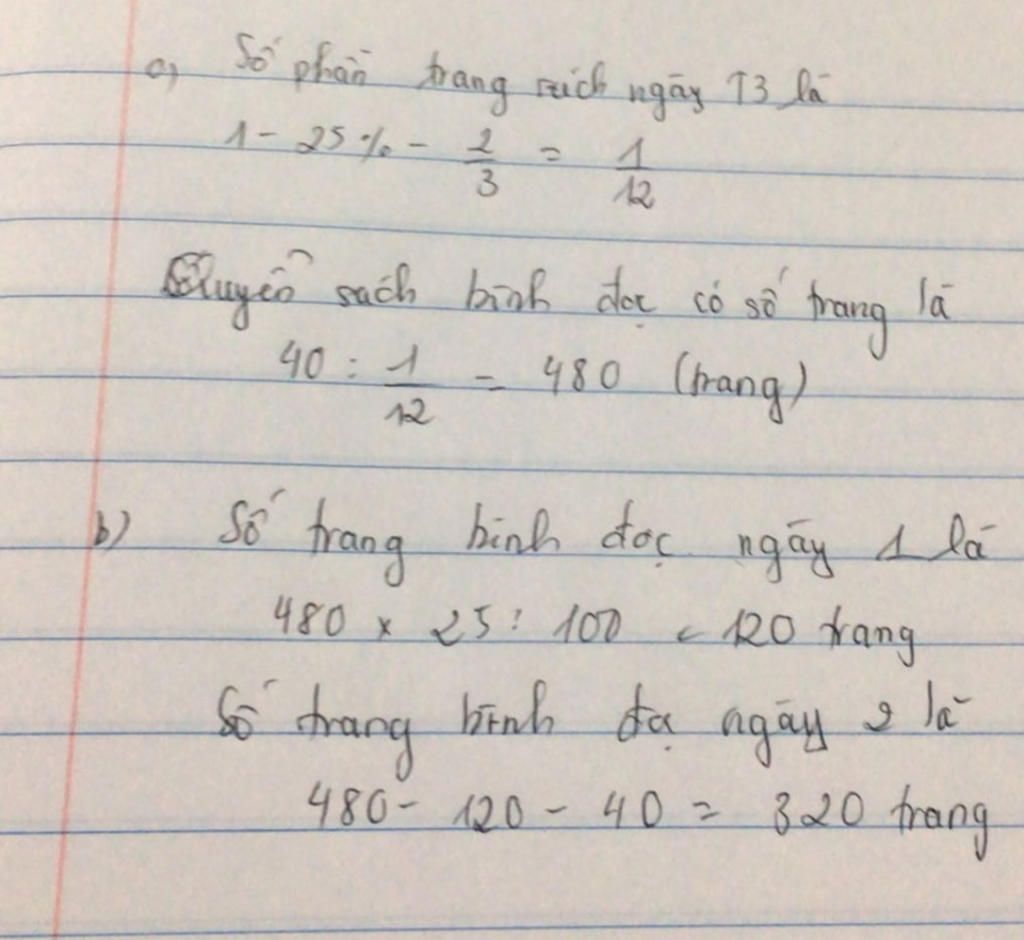 a) Số phần trang sách ngày T3 là
1 - 25% - 2/3 = 1/12
Quyển sách bình đọc có số trang là
40 : 1/12 = 480 (trang)
b) Số trang bình đọc ngày 1 là
480 x 25 : 100 = 120 trang
Số trang bình đọc ngày 2 là
480 - 120 - 40 = 320 trang